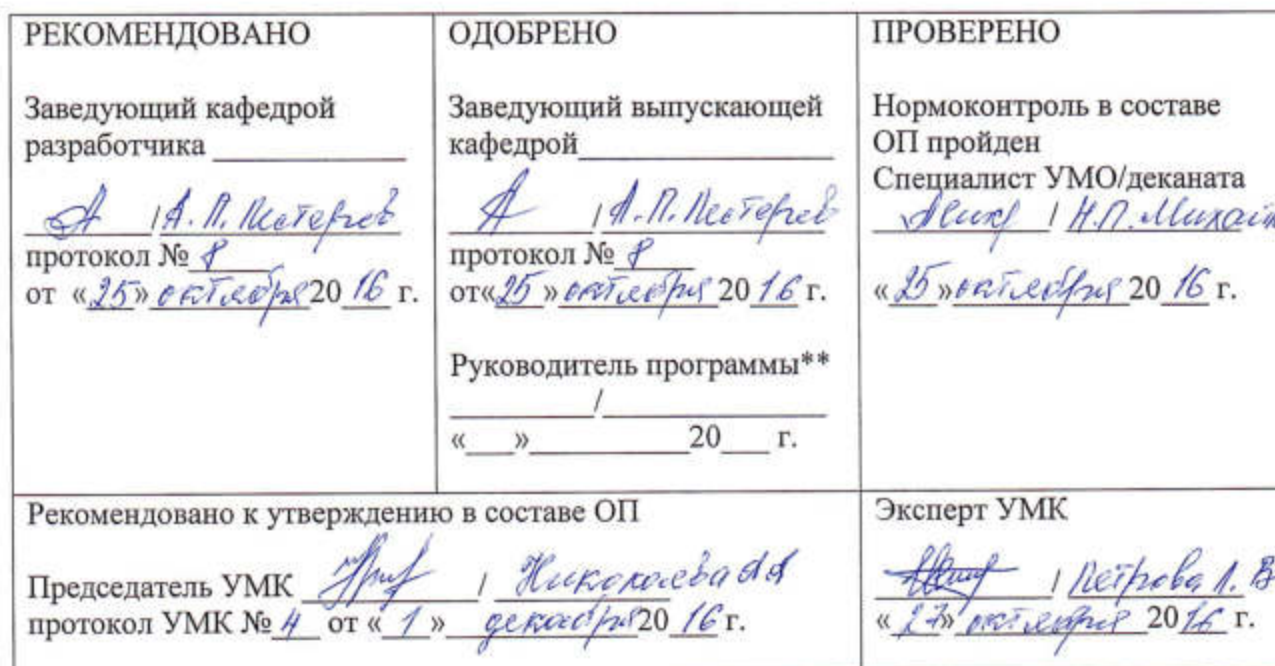 РЕКОМЕНДОВАНО
Заведующий кафедрой
разработчика ____________
/ А.П. Нестерев
протокол № 8
от «25» октября 2016 г.
ОДОБРЕНО
Заведующий выпускающей
кафедрой________________
/ А.П. Нестерев
протокол № 8
от«25» октября 2016 г.
Руководитель программы**
_________/______________
«___»__________20___ г.
ПРОВЕРЕНО
Нормоконтроль в составе
ОП пройден
Специалист УМО/деканата
/ Н.П.
«25» октября 2016 г.
Рекомендовано к утверждению в составе ОП
Председатель УМК / Николаева
протокол УМК № 4 от «1» декабря 2016 г.
Эксперт УМК
/ Петрова Л. В
«27» октября 2016 г.